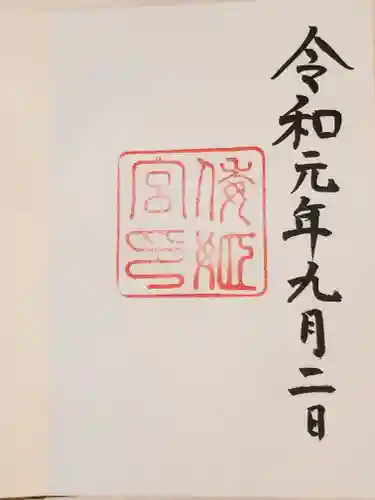 令和元年九月二日
倭姫
宮印